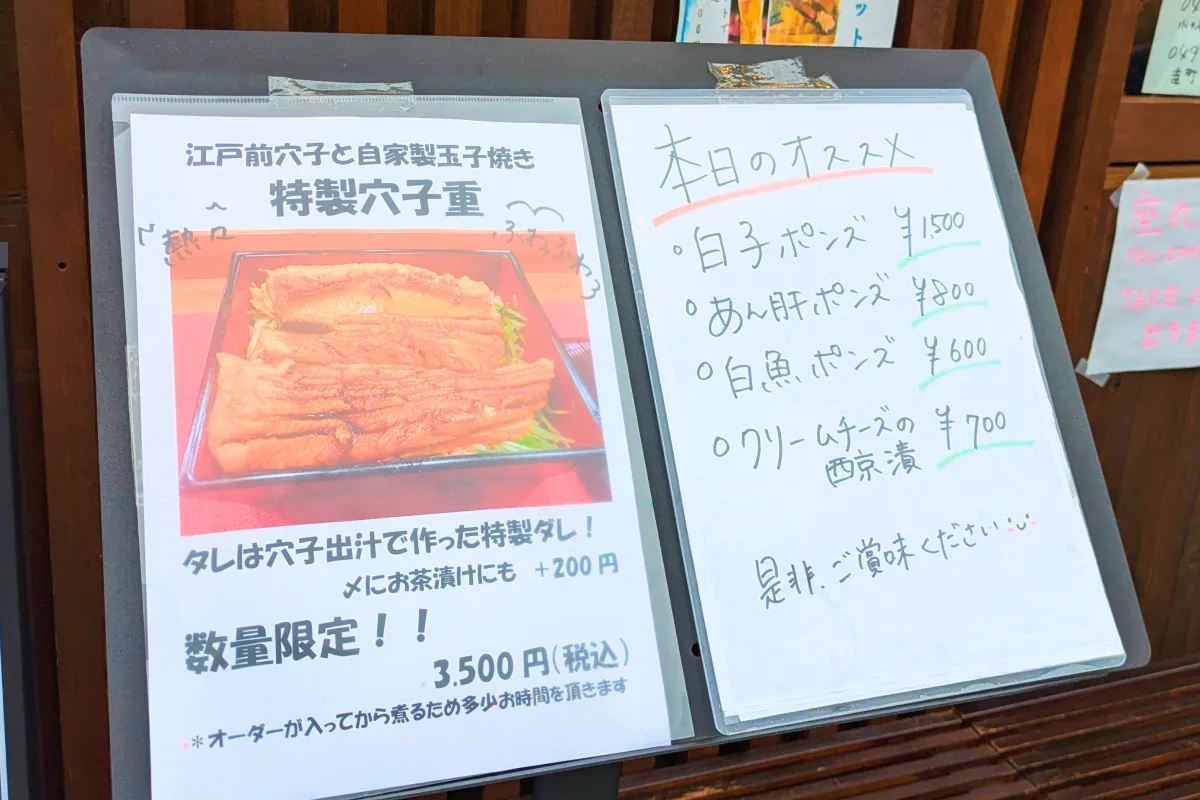 江戸前穴子と自家製玉子焼き
特製穴子重
熱々
ふわふわ
タレは穴子出汁で作った特製ダレ！
〆にお茶漬けにも +200円
数量限定！！
3.500円(税込)
＊オーダーが入ってから煮るため多少お時間を頂きます
本日のオススメ
白子ポンズ ¥1,500
あん肝ポンズ ¥800
白魚ポンズ ¥600
クリームチーズの
西京漬 ¥700
是非、ご賞味ください
ット
049
TAKE